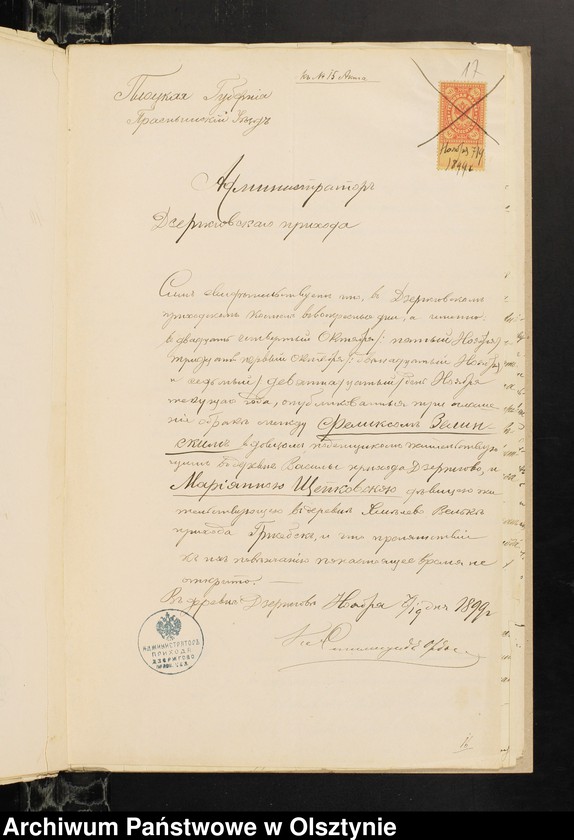 къ № 15 Акта
17
Плоцкая Губернія
Прасnышскій Уѣздъ
Ноября 7/19
1899 г.
Администраторъ
Дзержговскаго прихода
Симъ свидѣтельствуетъ что, въ Дзержговскомъ
приходскомъ костелѣ въ воскресные дни, а именно:
въ двадцать четвертый Октября /: пятый Ноября/
тридцать первый Октября /: двѣнадцатый Ноября
и седьмый / девятнадцатый / дня Ноября
текущаго года, опубликованы три оглаше
нія о бракѣ между Феликсомъ Зелин-
скимъ вдовцомъ помѣщикомъ жительствую
щимъ въ деревнѣ прихода Дзержгово, и
Маріянною Щепковскою дѣвицею жи
тельствующею въ деревнѣ Хмѣлево Вельке
прихода Гржебскъ, и что препятствій
къ ихъ повѣнчанію понастоящее время не
открыто.
Въ деревнѣ Дзержгово Ноября 7/19 дня 1899 г
АДМИНИСТРАТОРЪ
ПРИХОДА
ДЗЕРЖГОВО
16
Archiwum Państwowe w Olsztynie